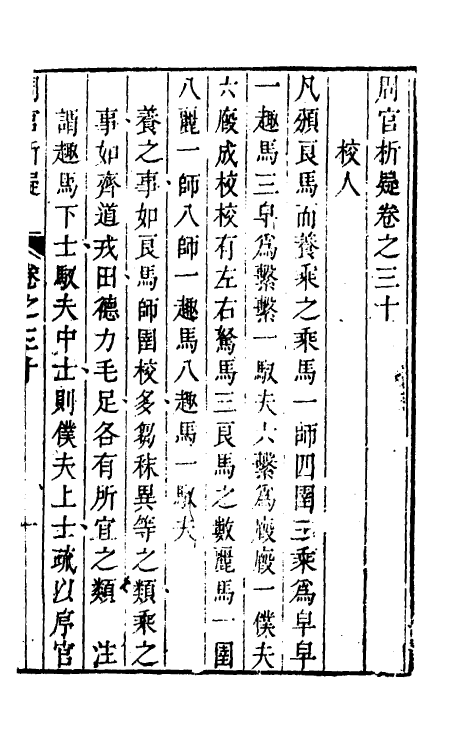 周官析疑卷之三十
校人
凡頒良馬而養乘之乘馬一師四圉三乘為皁皁
一趣馬三皁為繫繫一馭夫六繫為廄廄一僕夫
六廄成校校有左右駑馬三良馬之數麗馬一圉
八麗一師八師一趣馬八趣馬一馭夫
養之事如良馬師圉校多芻秣異等之類乘之
事如齊道戎田德力毛足各有所宜之類 注
謂趣馬下士馭夫中士則僕夫上士疏以序官
周官析疑
卷之三十